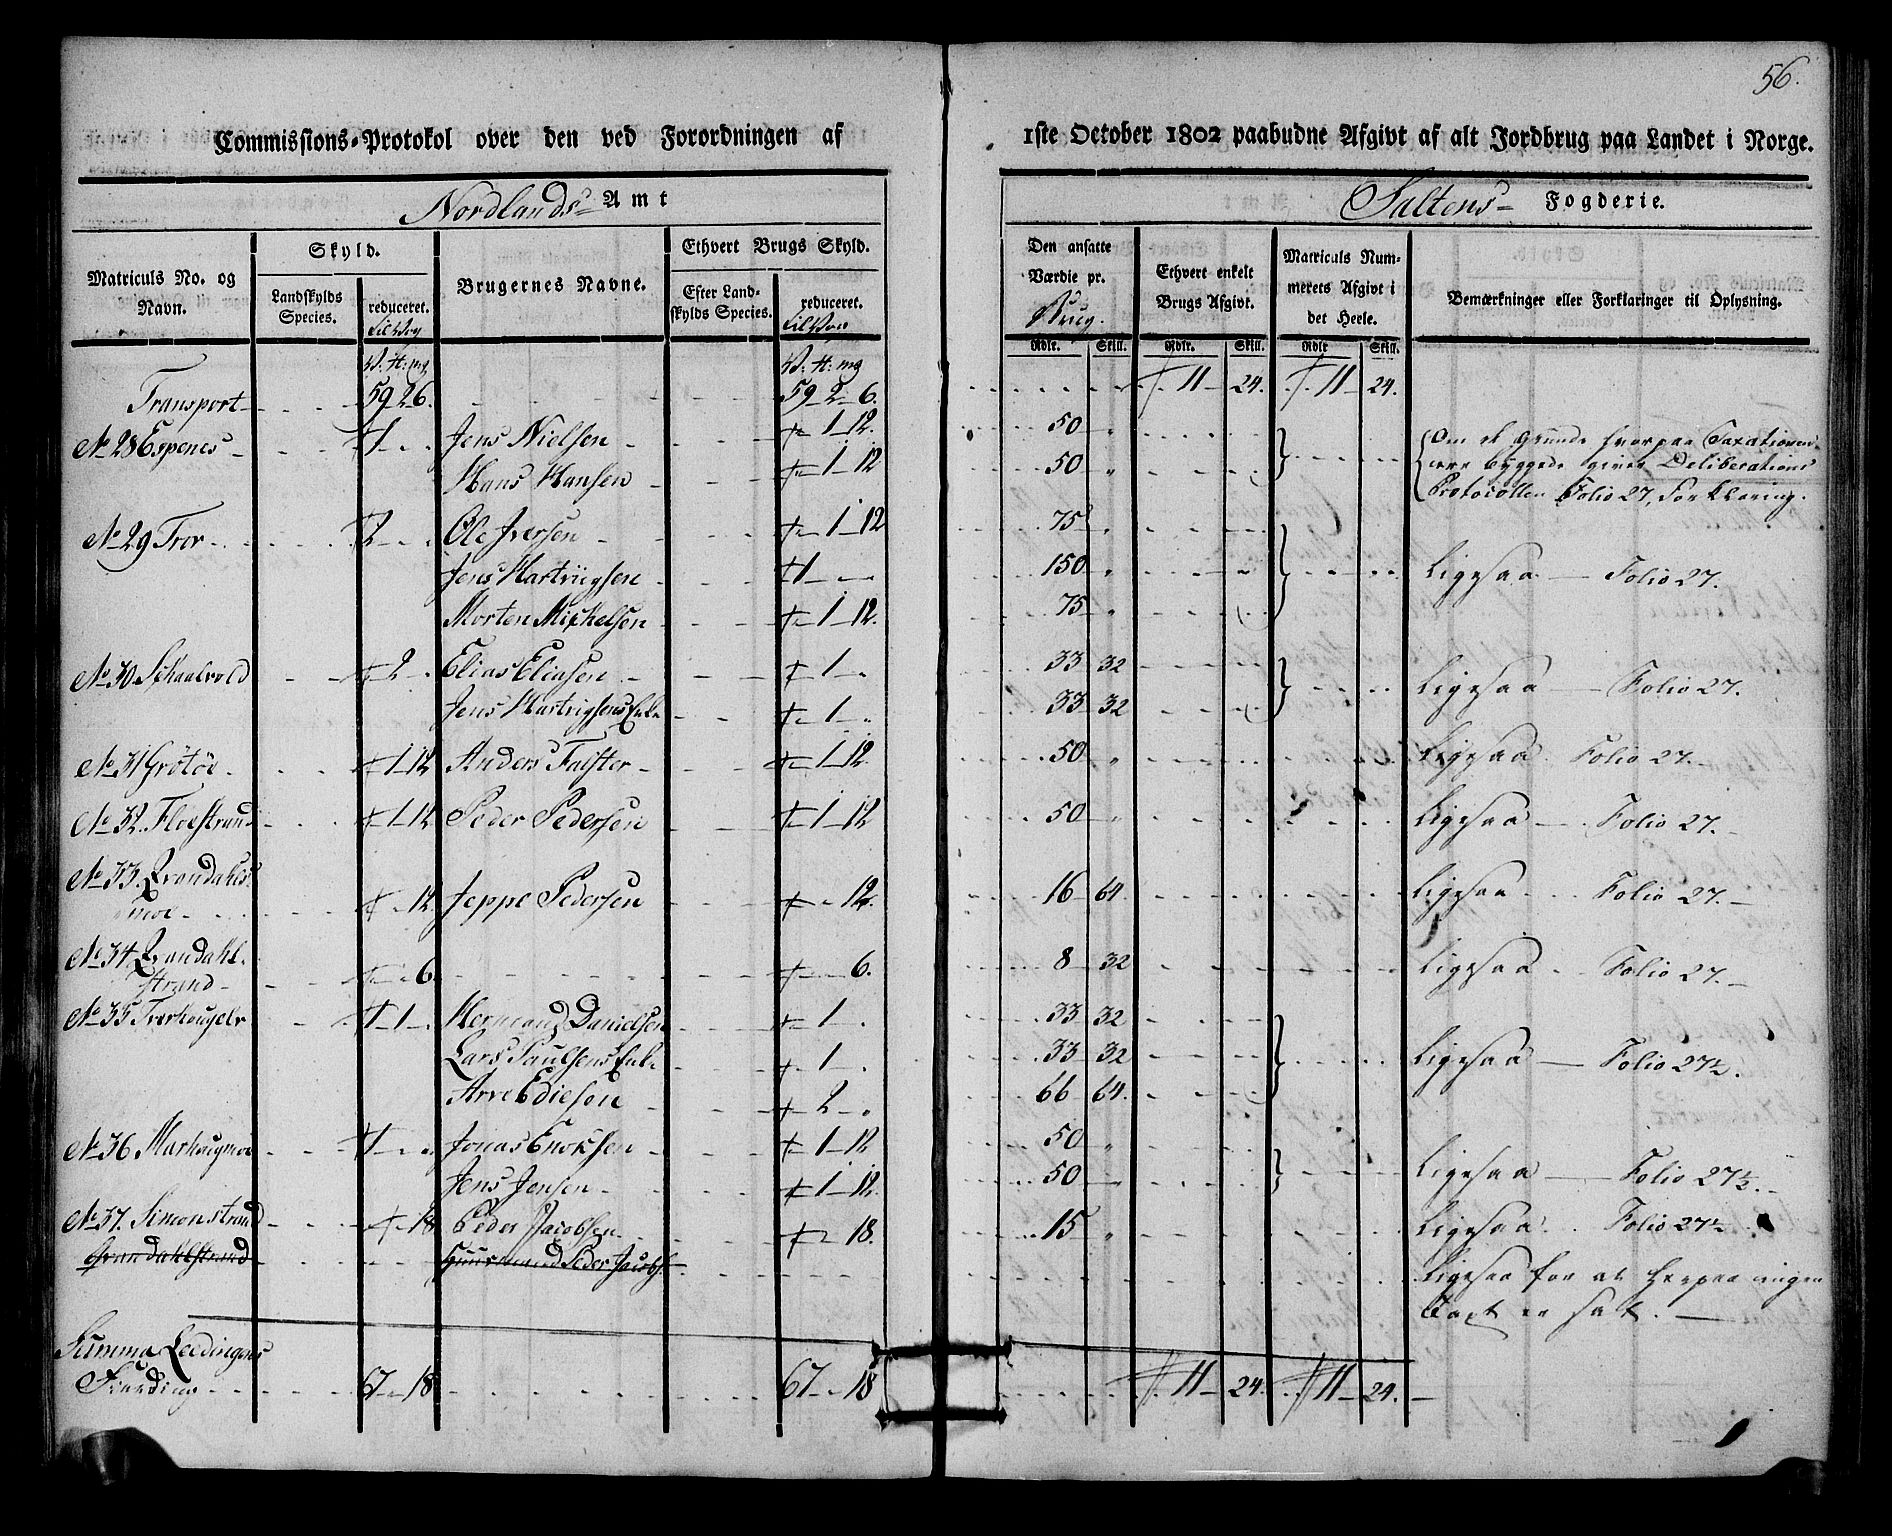 56.
Commissions-Protokol over den ved Forordningen af 1ste October 1802 paabudne Afgivt af alt Jordbrug paa Landet i Norge.
Nordlands Amt Saltens Fogderie.
Matriculs No. og Navn.
Skyld.
Landskylds Species.
reduceret.
Brugernes Navne.
Ethvert Brugs Skyld.
Efter Landskylds Species.
reduceret.
Den ansatte Værdie pr. Brug.
Ethvert enkelt Brugs Afgivt.
Matriculs Nummerets Afgivt i det Heele.
Bemærkninger eller Forklaringer til Oplysning.
V: H: mg V: H: mg Rdlr. Skill. Rdlr. Skill. Rdlr Skill.
Transport 59 2 6. 59 2 6. 11 24. 11 24.
No 28 Espenes 1 Jens Nielsen 1 12. 50
Hans Hansen 1 12 50
Om de Grunde hvorpaa Taxationen
ere byggede giver Deliberations
Protocollen Folio 27, Forklaring.
No 29 2 Ole Iversen 1 12 75
Jens Hartvigsen 1 150 Ligesaa Folio 27.
Morten Mikkelsen 1 12. 75
No 30 Skaalvold 2 Elias Eliasen 1 33 32 Ligesaa Folio 27.
Jens Hartvigsens Enke 1 33 32
No 31 Grøtøe 1 12 Anders Falster 1 12. 50 Ligesaa Folio 27.
No 32. Floestrand 1 12 Peder Pedersen 1 12 50 Ligesaa Folio 27.
No 33. 12 Jeppe Pedersen 12. 16 64. Ligesaa Folio 27.
moe
No 34
strand 6. 6. 8 32 Ligesaa Folio 27.
No 35 1 Hermand Danielsen 1 33 32
Lars Paulsens Enke 1 33 32 Ligesaa Folio 27½.
Arve Ediesen 2 66 64.
No 36 1 Jonas Enoksen 1 12 50
Jens Jensen 1 12. 50 Ligesaa Folio 27½.
No 37. Simonstrand 18 Peder Jacobsen 18. 15 Ligesaa Folio 27½
Peder Jacobs. Ligesaa for at herpaa ingen
Taxt er sat.
Summa Leedingens
Fierding 67 18 67 18 11 24. 11 24.